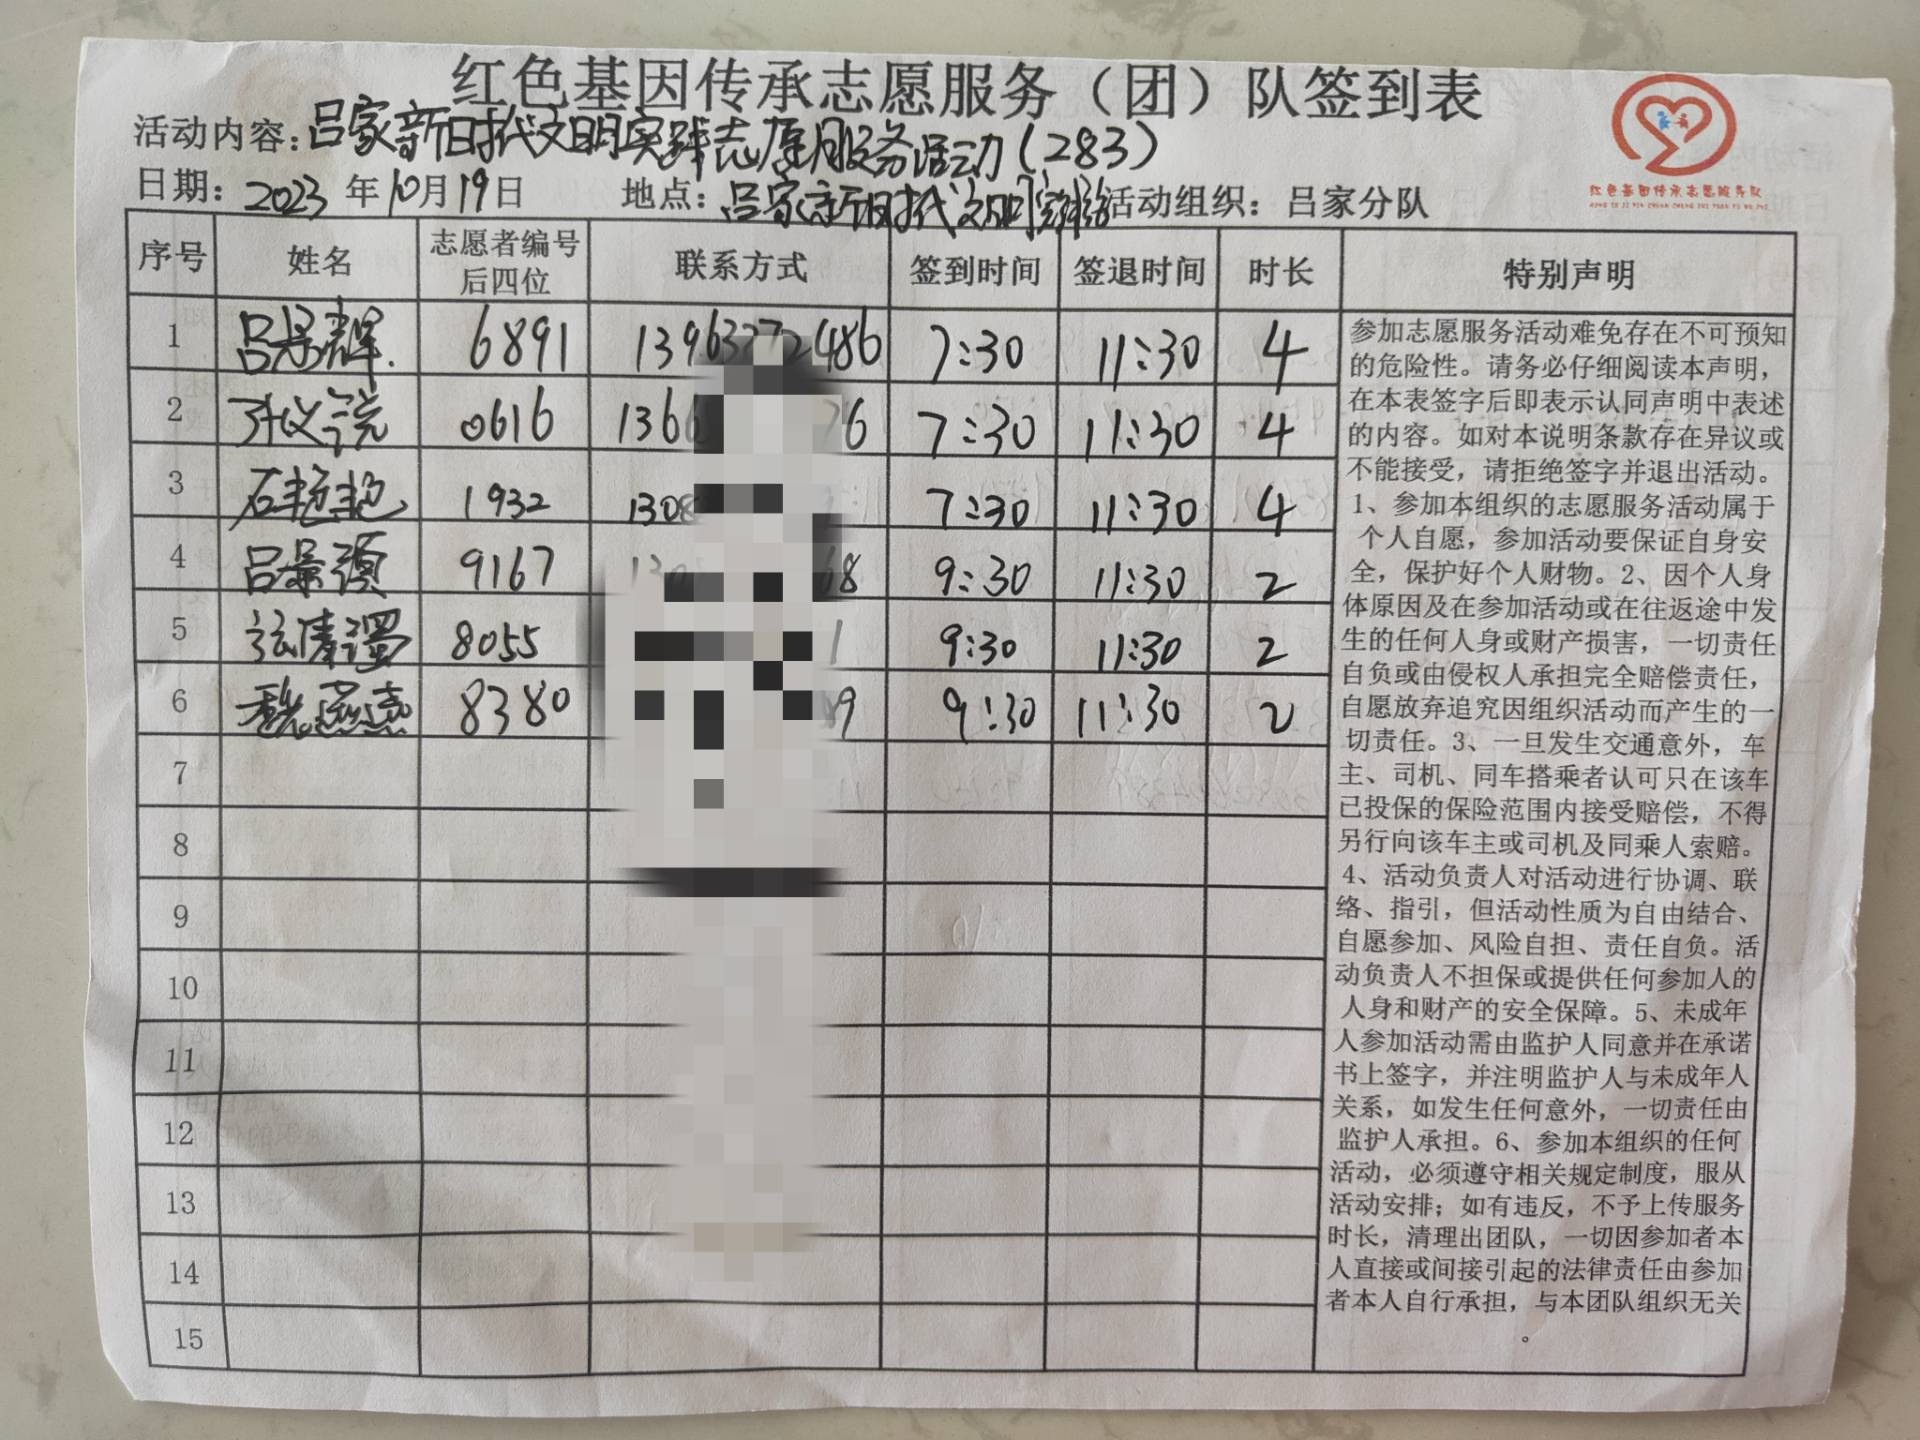 红色基因传承志愿服务（团）队签到表
活动内容：吕家新时代文明实践志愿服务活动（283）
日期：2023年10月19日 地点：吕家新时代文明实践站 活动组织：吕家分队
红色基因传承志愿服务队
序号 姓名 志愿者编号后四位 联系方式 签到时间 签退时间 时长 特别声明
1 吕景辉 6891 13963272486 7:30 11:30 4
2 0616 136 76 7:30 11:30 4
3 石艳艳 1932 1308 7:30 11:30 4
4 吕景 9167 68 9:30 11:30 2
5 8055 1 9:30 11:30 2
6 魏燕燕 8380 89 9:30 11:30 2
7
8
9
10
11
12
13
14
15
参加志愿服务活动难免存在不可预知
的危险性。请务必仔细阅读本声明，
在本表签字后即表示认同声明中表述
的内容。如对本说明条款存在异议或
不能接受，请拒绝签字并退出活动。
1、参加本组织的志愿服务活动属于
个人自愿，参加活动要保证自身安
全，保护好个人财物。2、因个人身
体原因及在参加活动或在往返途中发
生的任何人身或财产损害，一切责任
自负或由侵权人承担完全赔偿责任，
自愿放弃追究因组织活动而产生的一
切责任。3、一旦发生交通意外，车
主、司机、同车搭乘者认可只在该车
已投保的保险范围内接受赔偿，不得
另行向该车主或司机及同乘人索赔。
4、活动负责人对活动进行协调、联
络、指引，但活动性质为自由结合、
自愿参加、风险自担、责任自负。活
动负责人不担保或提供任何参加人的
人身和财产的安全保障。5、未成年
人参加活动需由监护人同意并在承诺
书上签字，并注明监护人与未成年人
关系，如发生任何意外，一切责任由
监护人承担。6、参加本组织的任何
活动，必须遵守相关规定制度，服从
活动安排；如有违反，不予上传服务
时长，清理出团队，一切因参加者本
人直接或间接引起的法律责任由参加
者本人自行承担，与本团队组织无关
。